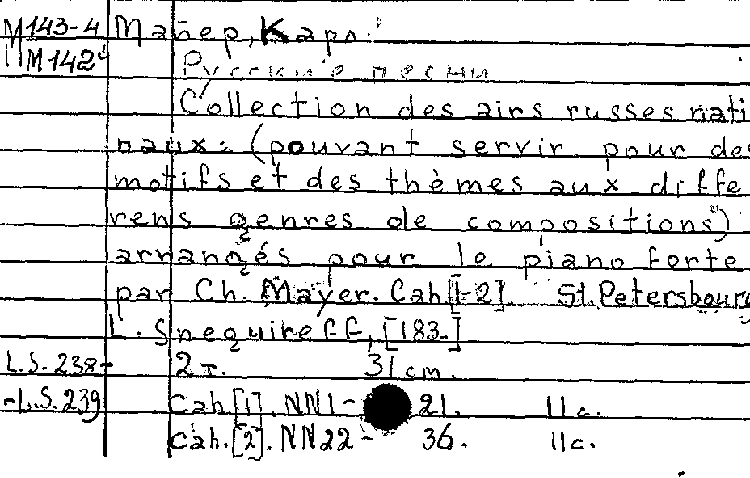 М143-4 Майер, Карл.
М142
Русские песни
Collection des airs russes nati
naux: (pouvant servir pour des
motifs et des thèmes aux diffe
rens genres de compositions)
arrangés pour le piano forte
par Ch. Mayer. Cah [1-2] St. Petersbourg
L. Snequireff, [183-]
L.S.238- 2 т. 31 cm.
-L.S.239 Cah [1]. NN1- 21. 11 с.
Cah. [2]. NN22- 36. 11с.